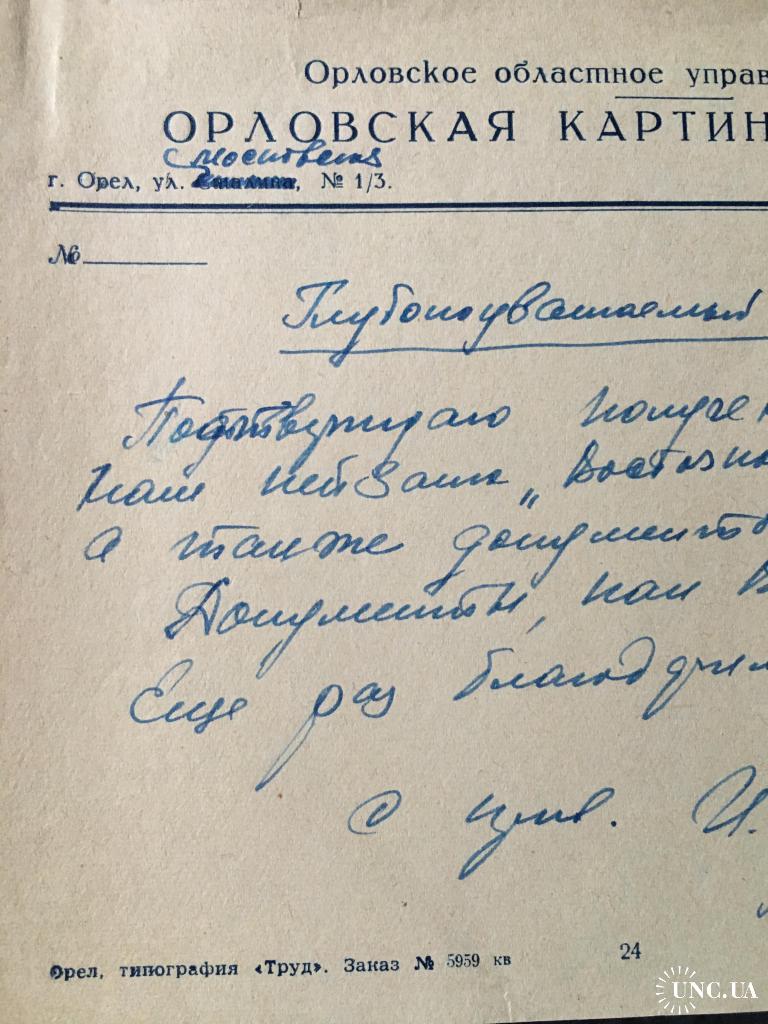 Орловское областное управ
ОРЛОВСКАЯ КАРТИН
с Московская
г. Орел, ул. Сталина, № 1/3.
№
Глубокоуважаемый
Подтверждаю получен
нам пейзаж „Восточн
а также документ
Документы, как В
Еще раз благод
С прив. И.
Орел, типография «Труд». Заказ № 5959 кв
24
UNC.UA